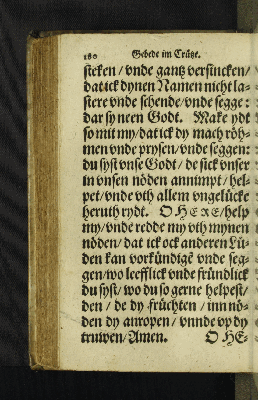 180 Gebede im Crütze.
steken / vnde gantz versincken /
dat ick dynen Namen nicht la-
stere vnde schende / vnde segge :
dar sy neen Godt. Make ydt
so mit my / dat ick dy mach röh-
men vnde prysen / vnde seggen:
du syst vnse Godt / de sick vnser
in vnsen nöden annimpt / hel-
pet / vnde vth allem vngelücke
heruth rydt. O HERE / help
my / vnde redde my vth mynen
nöden / dat ick ock anderen Lü-
den kan vorkündigē vnde seg-
gen / wo leefflick vnde fründlick
du syst / wo du so gerne helpest /
den / de dy früchten / inn nö-
den dy anropen / vnnde vp dy
truwen / Amen. O HE-